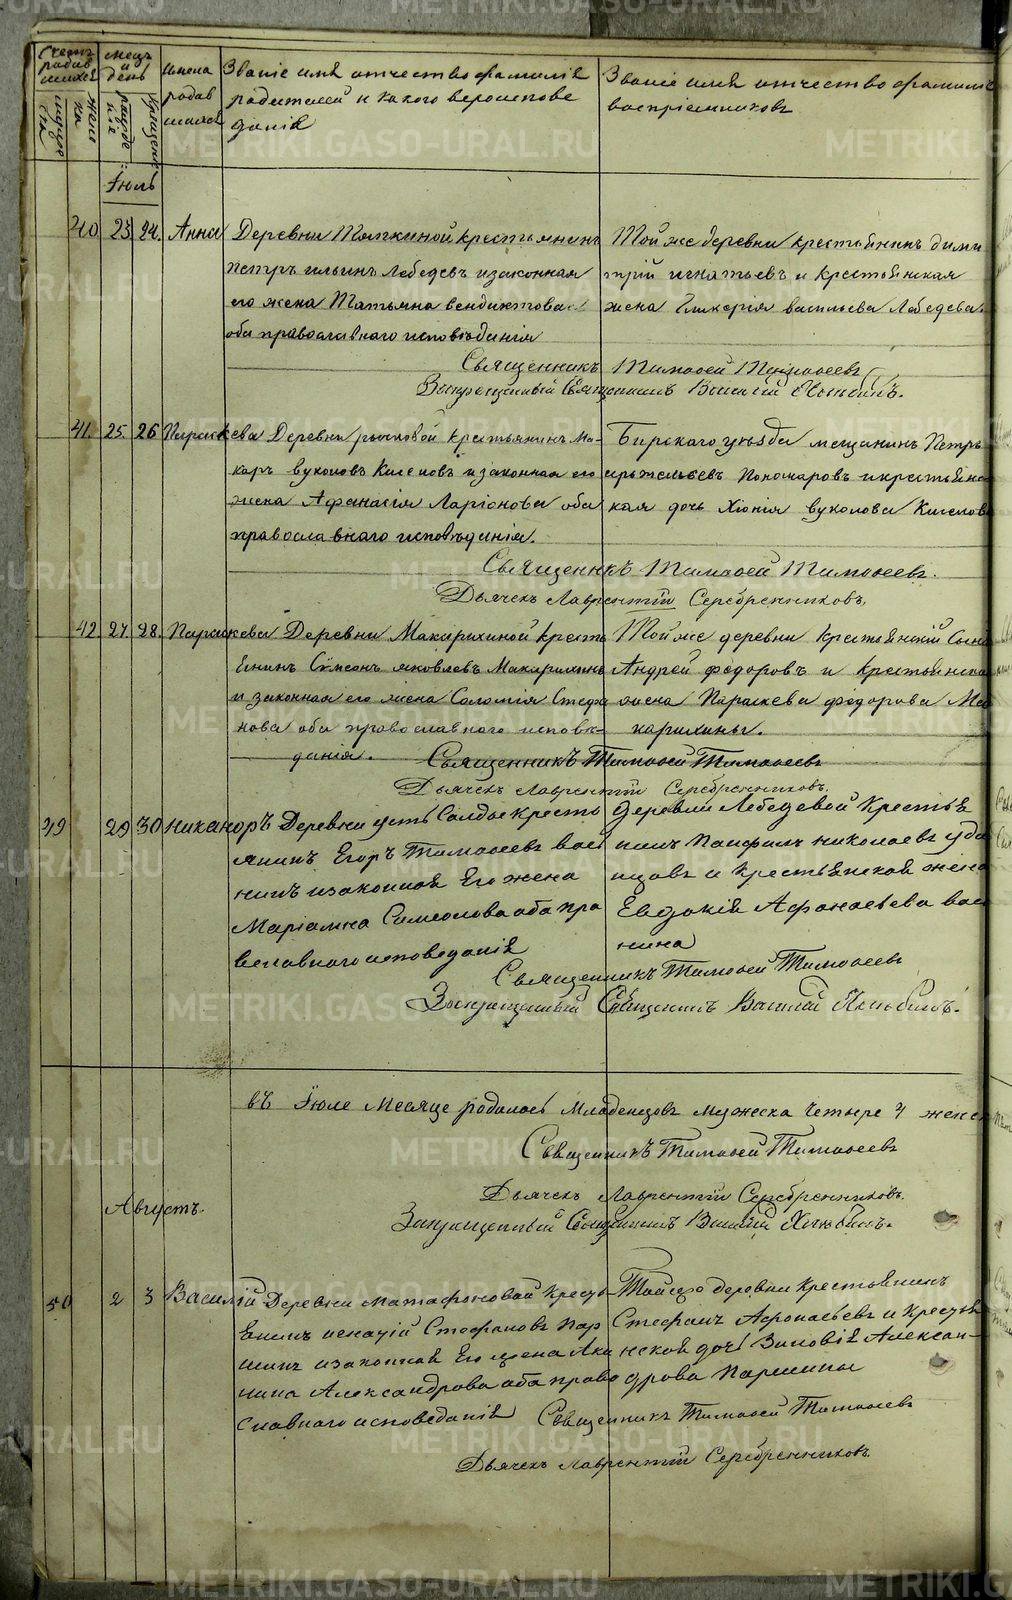 METRIKI.GASO-URAL.RU
Счетъ родив шихся
мужеска
женска
месцъ и день
рожде нiя
крещенiя
имена родив шихся
Званiе имя отчество фамилiя родителей и какого вероиспове данiя
Званiе имя отчество фамилiя воспрiемниковъ
Iюль
40 23 24. Анна
Деревни Тяпкиной крестьянинъ
Петръ ильинъ Лебедевъ изаконная
его жена Татьяна вендиктова
оба православнаго исповѣданiя
Той же деревни крестьянинъ дими
трiй игнатьевъ и крестьянская
жена Гликерiя васильева Лебедева.
Священникъ Тимофей Тимофеевъ
Запрещенный Священникъ Василiй Хлыбинъ.
41. 25. 26 Параскева
Деревни рычковой крестьянинъ Ма-
каръ вуколовъ Киселовъ изаконная его
жена Афанасiя Ларiонова оба
православнаго исповѣданiя.
Бирскаго уѣзда мещанинъ Петръ
Пономаровъ икрестьянс
кая дочь Хiонiя вуколова Киселова
Священникъ Тимофей Тимофеевъ.
Дьячекъ Лаврентiй Серебренниковъ.
42 27. 28. Параскева
Деревни Макарихиной кресть
янинъ Симеонъ яковлевъ Макарихинъ
и законная его жена Саломiя Стефа
нова оба православнаго исповѣ-
данiя.
Той же деревни Крестьянскiй Сынъ
Андрей федоровъ и крестьянска
жена Параскева федорова Ма
карихины.
Священникъ Тимофей Тимофеевъ
Дьячекъ Лаврентiй Серебренниковъ.
49 29 30 Никаноръ
Деревни усть Салды кресть
янинъ Егоръ Тимофеевъ Вося
нинъ изаконная Его жена
Марiамна Симеонова оба пра
веславнаго исповеданiя
Деревни Лебедевой Крестья
нинъ Панфилъ николаевъ
и Крестьянская жена
Евдокiя Афонасьева вос
нина
Священникъ Тимофей Тимофеевъ
Запрещенный Священникъ Василiй Хлыбинъ.
въ Iюле Месяце родилось Младенцовъ мужеска Четыре 4 женск
Священникъ Тимофей Тимофеевъ
Дьячекъ Лаврентiй Серебренниковъ.
Запрещенный Священникъ Василiй Хлыбинъ.
Августъ.
50 2 3 Василiй
Деревни Матафоновой кресть
янинъ игнатiй Стефановъ Пар
шинъ изаконная Его жена Аки
нина Александрова оба право
славнаго исповеданiя
Тойже деревни Крестьянинъ
Стефанъ Афонасьевъ и Кресть
нской дочь Зиновiя Алексан-
дрова Паршины
Священникъ Тимофей Тимофеевъ
Дьячекъ Лаврентiй Серебренниковъ.